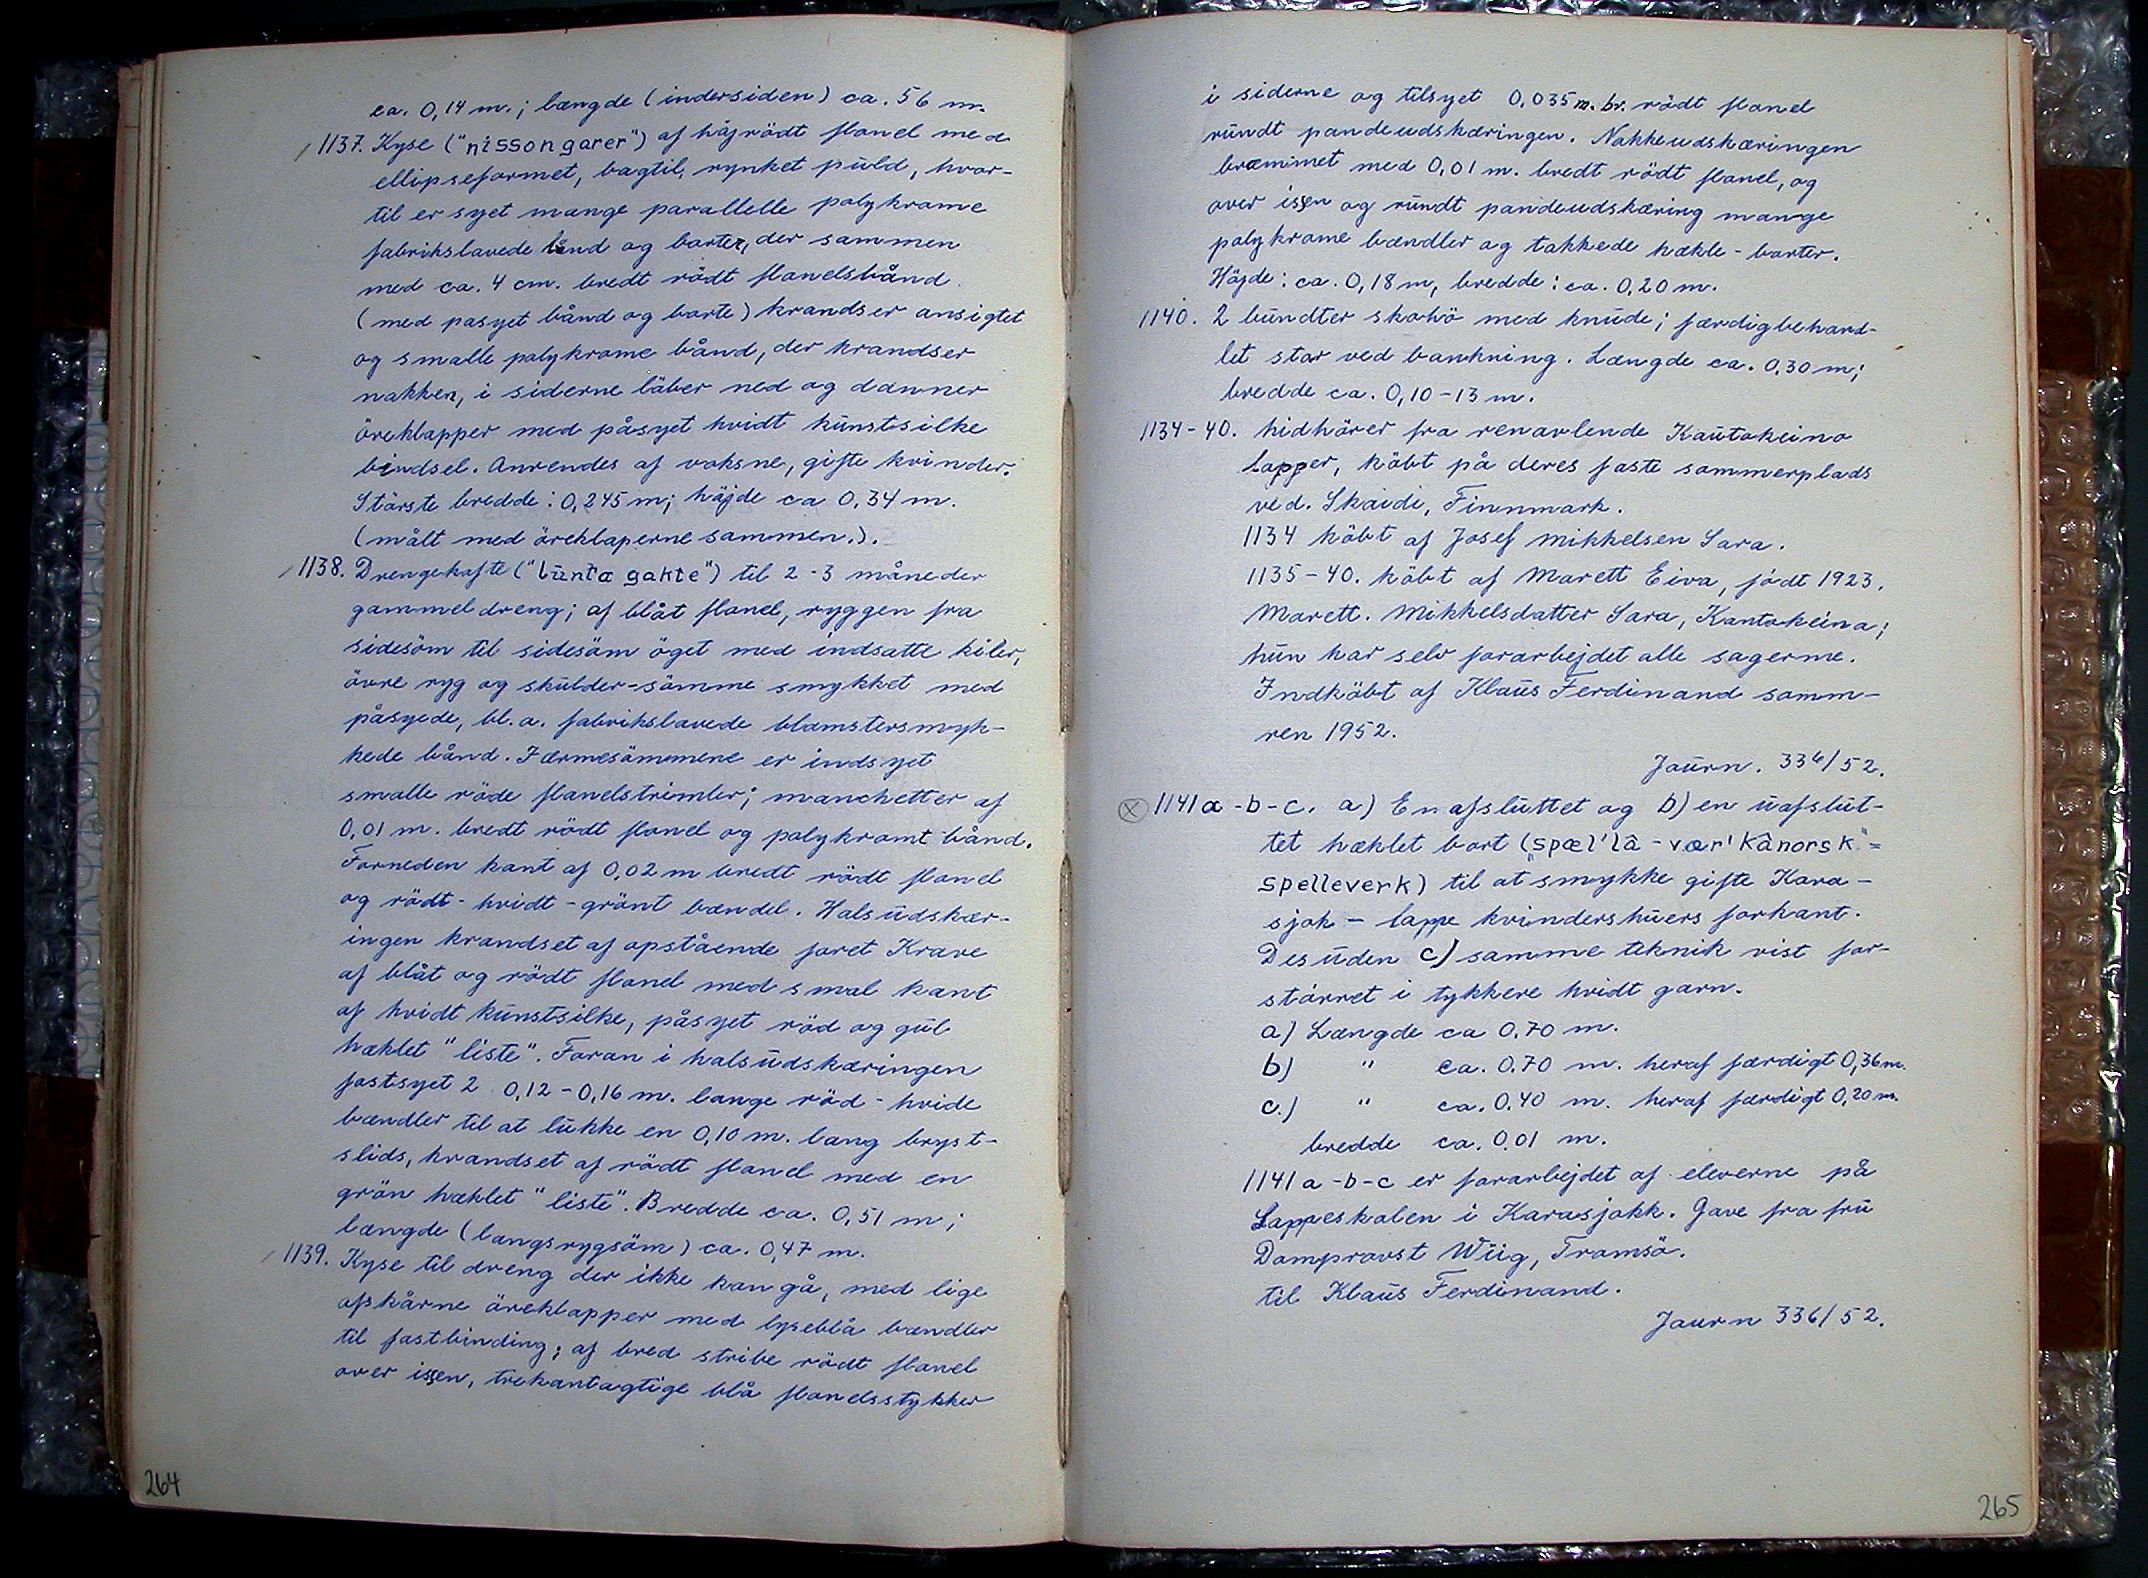 ca. 0,14 m.; længde (indersiden) ca. 56 m.
1137. Kyse ("nissongarer") af højrödt flanel med
ellipseformet, bagtil, rynket puld, hvor-
til er syet mange parallelle polykrome
fabrikslavede bånd og borter, der sammen
med ca. 4 cm. bredt rödt flanelsbånd
(med pasyet bånd og borte) krandser ansigtet
og smalle polykrome bånd, der krandser
nakken, i siderne löber ned og danner
öreklapper med påsyet hvidt kunstsilke
bindsel. Anvendes af voksne, gifte kvinder.
Största bredde: 0,245 m; höjde ca 0,34 m.
(målt med öreklaperne sammen.).
1138. Drengekofte ("bunta gakte") til 2-3 måneder
gammel dreng; af blåt flanel, ryggen fra
sidesöm til sidesöm öget med indsatte kiler,
övre ryg og skulder-sömme smykket med
påsyede, bl.a. fabrikslavede blomstersmyk-
kede bånd. I ærmesömmene er indsyet
smalle röde flanelstrimler; manchetter af
0,01 m. bredt rödt flanel og polykromt bånd.
Forneden kant af 0,02 m bredt rödt flanel
og rödt-hvidt-grönt bændel. Halsudskær-
ingen krandset af opstående foret Krave
af blåt og rödt flanel med smal kant
af hvidt kunstsilke, påsyet röd og gul
hæklet "liste". Foran i halsudskæringen
fastsyet 2 0,12-0,16 m. lange röd-hvide
bændler til at lukke en 0,10 m. lang bryst-
slids, krandset af rödt flanel med en
grön hæklet "liste". Bredde ca. 0,51 m;
længde (langs rygsöm) ca. 0,47 m.
1139. Kyse til dreng der ikke kan gå, med lige
afskårne öreklapper med lyseblå bændler
til fastbinding; af bred stribe rödt flanel
over issen, trekantagtige blå flanelsstykker
264
i siderne og tilsyet 0,035 m. br. rödt flanel
rundt pandeudskæringen. Nakkeudskæringen
bræmmet med 0,01 m. bredt rödt flanel, og
over issen og rundt pandeudskæring mange
polykrome bændler og takkede hækle-borter.
Höjde: ca. 0,18 m, bredde: ca. 0,20 m.
1140. 2 bundter skohö med knude; færdigbehand-
let star ved bankning. Længde ca. 0,30 m;
bredde ca. 0,10-13 m.
1134-40. hidhörer fra renavlende Kautokeino
lapper, köbt på deres faste sommerplads
ved. Skaidi, Finnmark.
1134 köbt af Josef Mikkelsen Sara.
1135-40. köbt af Marett Eiva, födt 1923.
Marett. Mikkelsdatter Sara, Kantokeina;
hun har selv forarbejdet alle sagerne.
Indköbt af Klaus Ferdinand somm-
ren 1952.
Journ. 336/52.
1141 a-b-c. a) En afsluttet og b) en uafslut-
tet hæklet bort ("spæl'lâ-vær'Kânorsk"=
spelleverk) til at smykke gifte Kara-
sjok-lappe kvindershuers forkant.
Desuden c) samme teknik vist for-
störret i tykkere hvidt garn.
a) Længde ca 0.70 m.
b) " ca. 0.70 m. heraf færdigt 0,36 m.
c.) " ca. 0.40 m. heraf færdigt 0,20 m.
bredde ca. 0.01 m.
1141 a-b-c er forarbejdet af eleverne på
Lappeskolen i Karasjokk. Gave fra fru
Domprovst Wiig, Tromsö.
til Klaus Ferdinand.
Journ 336/52.
265